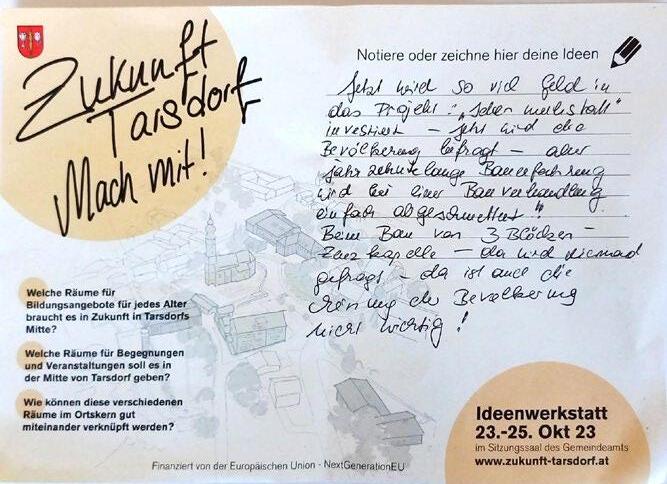 Zukunft
Tarsdorf
Mach mit!
Notiere oder zeichne hier deine Ideen
Jetzt wird so viel Geld in
das Projekt: "Ideenwerkstatt"
investiert – jetzt wird die
Bevölkerung befragt – aber
jahrzehntelange Bauerfahrung
wird bei einer Bauverhandlung
einfach abgeschmettert!!
Beim Bau von 3 Blöcken –
– da wird niemand
gefragt – da ist auch die
Meinung der Bevölkerung
nicht wichtig!
Welche Räume für
Bildungsangebote für jedes Alter
braucht es in Zukunft in Tarsdorfs
Mitte?
Welche Räume für Begegnungen
und Veranstaltungen soll es in
der Mitte von Tarsdorf geben?
Wie können diese verschiedenen
Räume im Ortskern gut
miteinander verknüpft werden?
Ideenwerkstatt
23.-25. Okt 23
im Sitzungssaal des Gemeindeamts
www.zukunft-tarsdorf.at
Finanziert von der Europäischen Union - NextGenerationEU